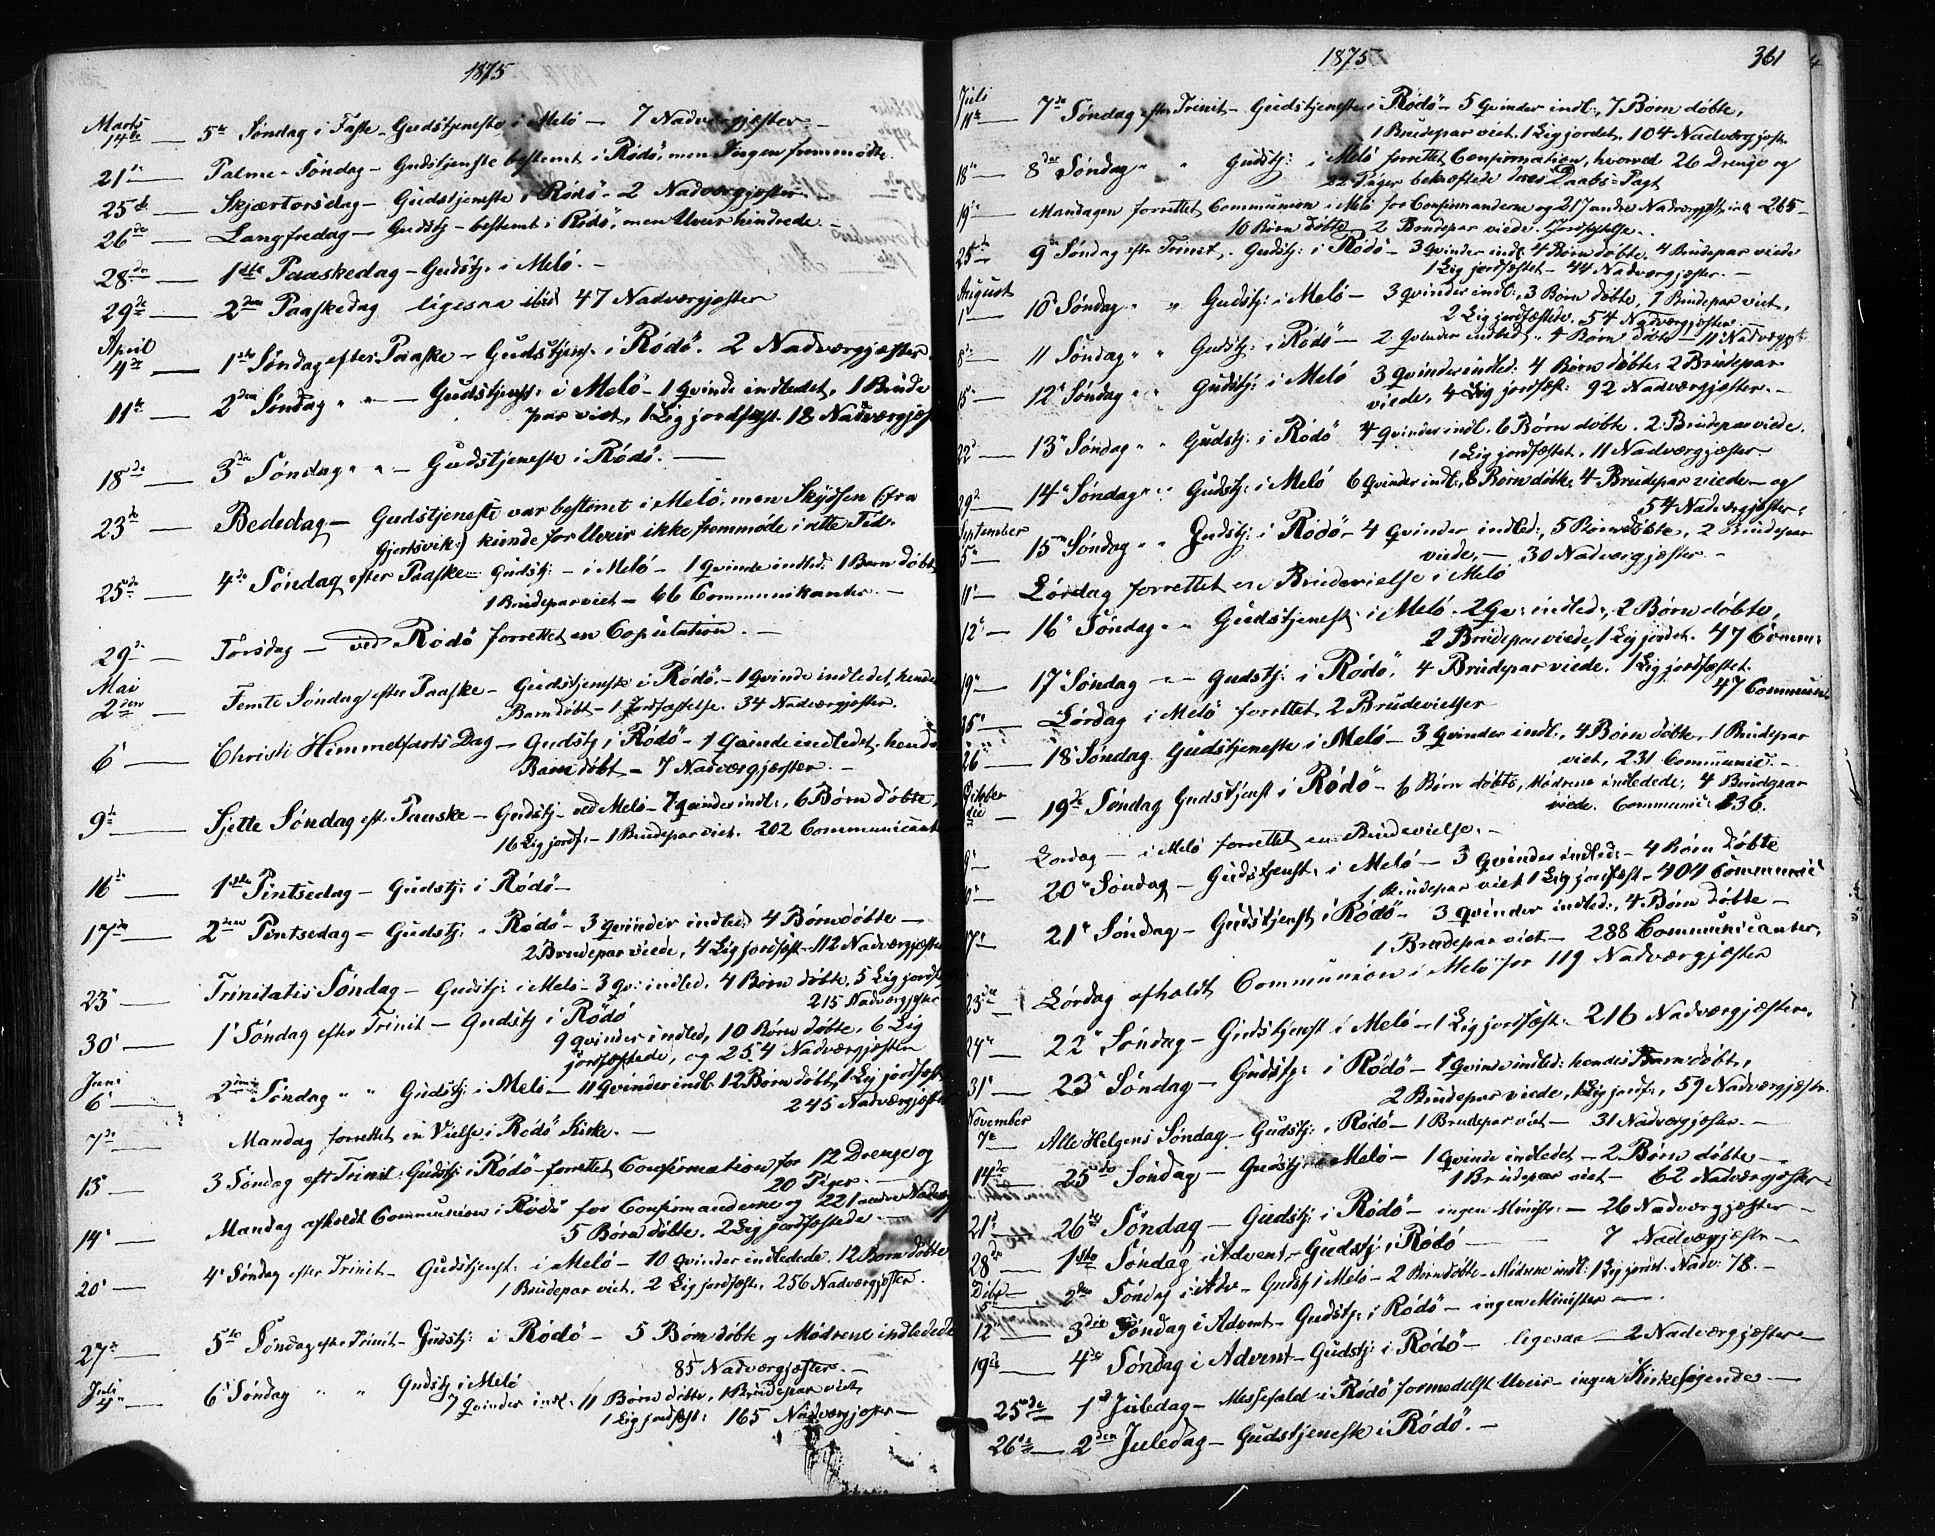 1875
Marts
14de — 5te Søndag i Faste – Gudstjeneste i Melö — 7 Nadværgjæster —
21de — Palme-Søndag – Gudstjeneste bestemt i Rödö, men Ingen fremmødte.
25de — Skjærtorsdag – Gudstjeneste i Rödö – 2 Nadværgjæster.
26de — Langfredag – Gudstj – bestemt i Rödö, men Uveir hindrede. –
28de — 1ste Paaskedag – Gudstj: i Melö. –
29de — 2den Paaskedag ligesaa ibid 47 Nadværgjæster
April
4de — 1ste Søndag efter Paaske – Gudstjenst. i Rödö. 2 Nadværgjæster.
11te — 2den Søndag " " – Gudstjenst: i Melö – 1 Qvinde indledet, 1 Brude
par viet, 1 Lig jordfæst. 18 Nadværgjæst
18de — 3die Søndag " " – Gudstjeneste i Rödö. —
23de — Bededag – Gudstjeneste var bestemt i Melö, men Skydsen (: fra
Gjersvik :) kunde for Uveir ikke fremmøde i rette Tid.
25de — 4de Søndag efter Paaske – Gudstj: – i Melö – 1 Qvinde indled: 1 Barn døbt
1 Brudepar viet – 66 Communikanter. –
29de — Torsdag — ved Rödö forrettet en Copulation. –
Mai
2den — Femte Søndag efter Paaske – Gudstjeneste i Rödö. – 1 Qvinde indledet, hendes
Barn døbt – 1 Jordfæstelse. 34 Nadværgjæster.
6' — Christi Himmelfarts Dag – Gudstj i Rödö – 1 Qvinde indledet, hendes
Barn døbt – 7 Nadværgjæster. –
9de — Sjette Søndag eft. Paaske – Gudstj – ved Melö – 7 Qvinder indl:, 6 Børn døbte,
16 Lig jordf: – 1 Brudepar viet. 202 Communicant
16de — 1ste Pintsedag – Gudstj: i Rödö –
17de — 2den Pintsedag – Gudstj: i Rödö – 3 Qvinder indled: 4 Børn døbte –
2 Brudepar viede, 4 Lig jordfæst – 112 Nadværgjæster
23' — Trinitatis Søndag – Gudstj: i Melö – 3 Qv: indled, 4 Børn døbte, 5 Lig jordf
215 Nadværgjæster
30' — 1' Søndag efter Trinit – Gudstj i Rödö
9 Qvinder indled, 10 Børn døbte, 6 Lig
jordfæstede, og 254 Nadværgjæster
Juni
6' — 2den Søndag " " Gudstj: i Melö – 11 Qvinder indl: 12 Børn døbt, 1 Lig jordfæst
245 Nadværgjæster
7de — Mandag forrettet en Vielse i Rödö Kirke. –
13' — 3 Søndag eft Trinit: Gudstj: i Rödö – forrettet Confirmation for 12 Drenge og
20 Piger. —
14' — Mandag afholdt Communion i Rödö for Confirmanderne og 221 andre Nadværg
5 Børn døbte. 2 Lig jordfæstede. –
20' — 4' Søndag efter Trinit – Gudstjenst: i Melö – 10 Qvinder indledede. 12 Børn døbte
1 Brudepar viet, 2 Lig jordfæst., 256 Nadværgjæster.
27de — 5te Søndag efter Trinit – Gudstj: i Rödö – 5 Børn døbte og Mødrene indledede
85 Nadværgjæster. –
Juli
4de — 6' Søndag " " Gudstj i Melö
7 Qvinder indl: 11 Børn døbte, 1 Brudepar viet,
1 Lig jordfæst: 165 Nadværgjæster –
1875 361
Juli
11te — 7de Søndag efter Trinit – Gudstjeneste i Rödö – 5 Qvinder indl:, 7 Børn døbte,
1 Brudepar viet, 1 Lig jordet, 104 Nadværgjæster.
18de — 8de Søndag " " Gudstj: i Melö forrettet Confirmation, hvorved 26 Drenge og
22 Piger bekræftede deres Daabs-Pagt
19de — Mandagen forrettet Communion i Melö for Confirmanderne og 217 andre Nadværgjæst: ialt 265 –
10 Børn døbte 2 Brudepar viede.
25de — 9de Søndag eft Trinit. Gudstj: i Rödö – 3 Qvinder indl 4 Børn døbte. 4 Brudepar viede
1 Lig jordfæstet – 44 Nadværgjæster. –
August
1ste — 10' Søndag " " Gudstj: i Melö – 3 Qvinder indl:, 3 Børn døbte, 1 Brudepar viet,
2 Lig jordfæstede. 54 Nadværgjæster –
8de — 11 Søndag " " Gudstj: i Rödö – 2 Qvinder indled. 4 Børn døbte – 11 Nadværgjæst
15' — 12' Søndag " " Gudstj: i Melö 3 Qvinder indled: 4 Børn døbte, 2 Brudepar
viede, 4 Lig jordfæst: 92 Nadværgjæster. –
22' — 13' Søndag " " Gudstj: i Rödö 4 Qvinder indl. 6 Børn døbte. 2 Brudepar viede.
1 Lig jordfæstet, 11 Nadværgjæster –
29' — 14' Søndag " " Gudstj: i Melö 6 Qvinder indl:, 8 Børn døbte, 4 Brudepar viede – og
54 Nadværgjæster.
September
5' — 15' Søndag " " Gudstj: i Rödö – 4 Qvinder indled:, 5 Børn døbte, 2 Brudepar
viede, – 30 Nadværgjæster –
11' — Lørdag forrettet en Brudevielse i Melö
12' — 16' Søndag " " Gudstjenest: i Melö. 2 Qv: indled:, 2 Børn døbte,
2 Brudepar viede, 1 Lig jordet. 47 Comm:
19' — 17' Søndag – " – Gudstj: i Rödö. 4 Brudepar viede. 1 Lig jordfæstet.
47 Communic
25' — Lørdag i Melö forrettet 2 Brudevielser
26' — 18' Søndag Gudstjeneste i Melö – 3 Qvinder indl:, 4 Børn døbte, 1 Brudepar
viet, 231 Communic. –
Oktober
— 19de Søndag Gudstjenst i Rödö – 6 Børn døbte, Mødrene indledede, 4 Brudepar
viede. Communic: 236.
9' — Lørdag – i Melö forrettet en Brudevielse. –
— 20' Søndag – Gudstjenst: i Melö – 3 Qvinder indled: – 4 Børn døbte
1 Brudepar viet 1 Lig jordfæst – 404 Communic
17' — 21' Søndag – Gudstjenst i Rödö – 3 Qvinder indled:, 4 Børn døbte –
1 Brudepar viet – 288 Communicanter.
23de — Lørdag afholdt Communion i Melö for 119 Nadværgjæster
24' — 22' Søndag – Gudstjenst i Melö – 1 Lig jordfæst – 216 Nadværgjæster.
31' — 23' Søndag – Gudstj: i Rödö – 1 Qvinde indled: hendes Barn døbt,
2 Brudepar viede, 1 Lig jordf:, 59 Nadværgjæstr.
November
7de — Alle Helgens Søndag – Gudstj: i Rödö – 1 Brudepar viet – 31 Nadværgjæster. –
14de — 25de Søndag – Gudstj: i Melö – 1 Qvinde indledet – 2 Børn døbte –
1 Brudepar viet – 62 Nadværgjæster
21' — 26de Søndag – Gudstj: i Rödö – ingen Minist: – 26 Nadværgjæster –
28de — 1ste Søndag i Advent – Gudstj: i Rödö — 7 Nadværgjæstr –
Decbr
5te — 2den Søndag i Adv – Gudstj i Melö – 2 Børn døbte – Mødrene indl: 1 Lig jordet – Nadv: 78. –
12 — 3die Søndag i Advent – Gudstj: i Rödö – ingen Minister –
19de — 4de Søndag i Advent – Gudstj: i Rödö – ligesaa – 2 Nadværgjæster –
25de — 1' Juledag – Messefald i Rödö formedelst Uveir – ingen Kirkesøgende –
26de — 2den Juledag – Gudstjeneste i Rödö. –